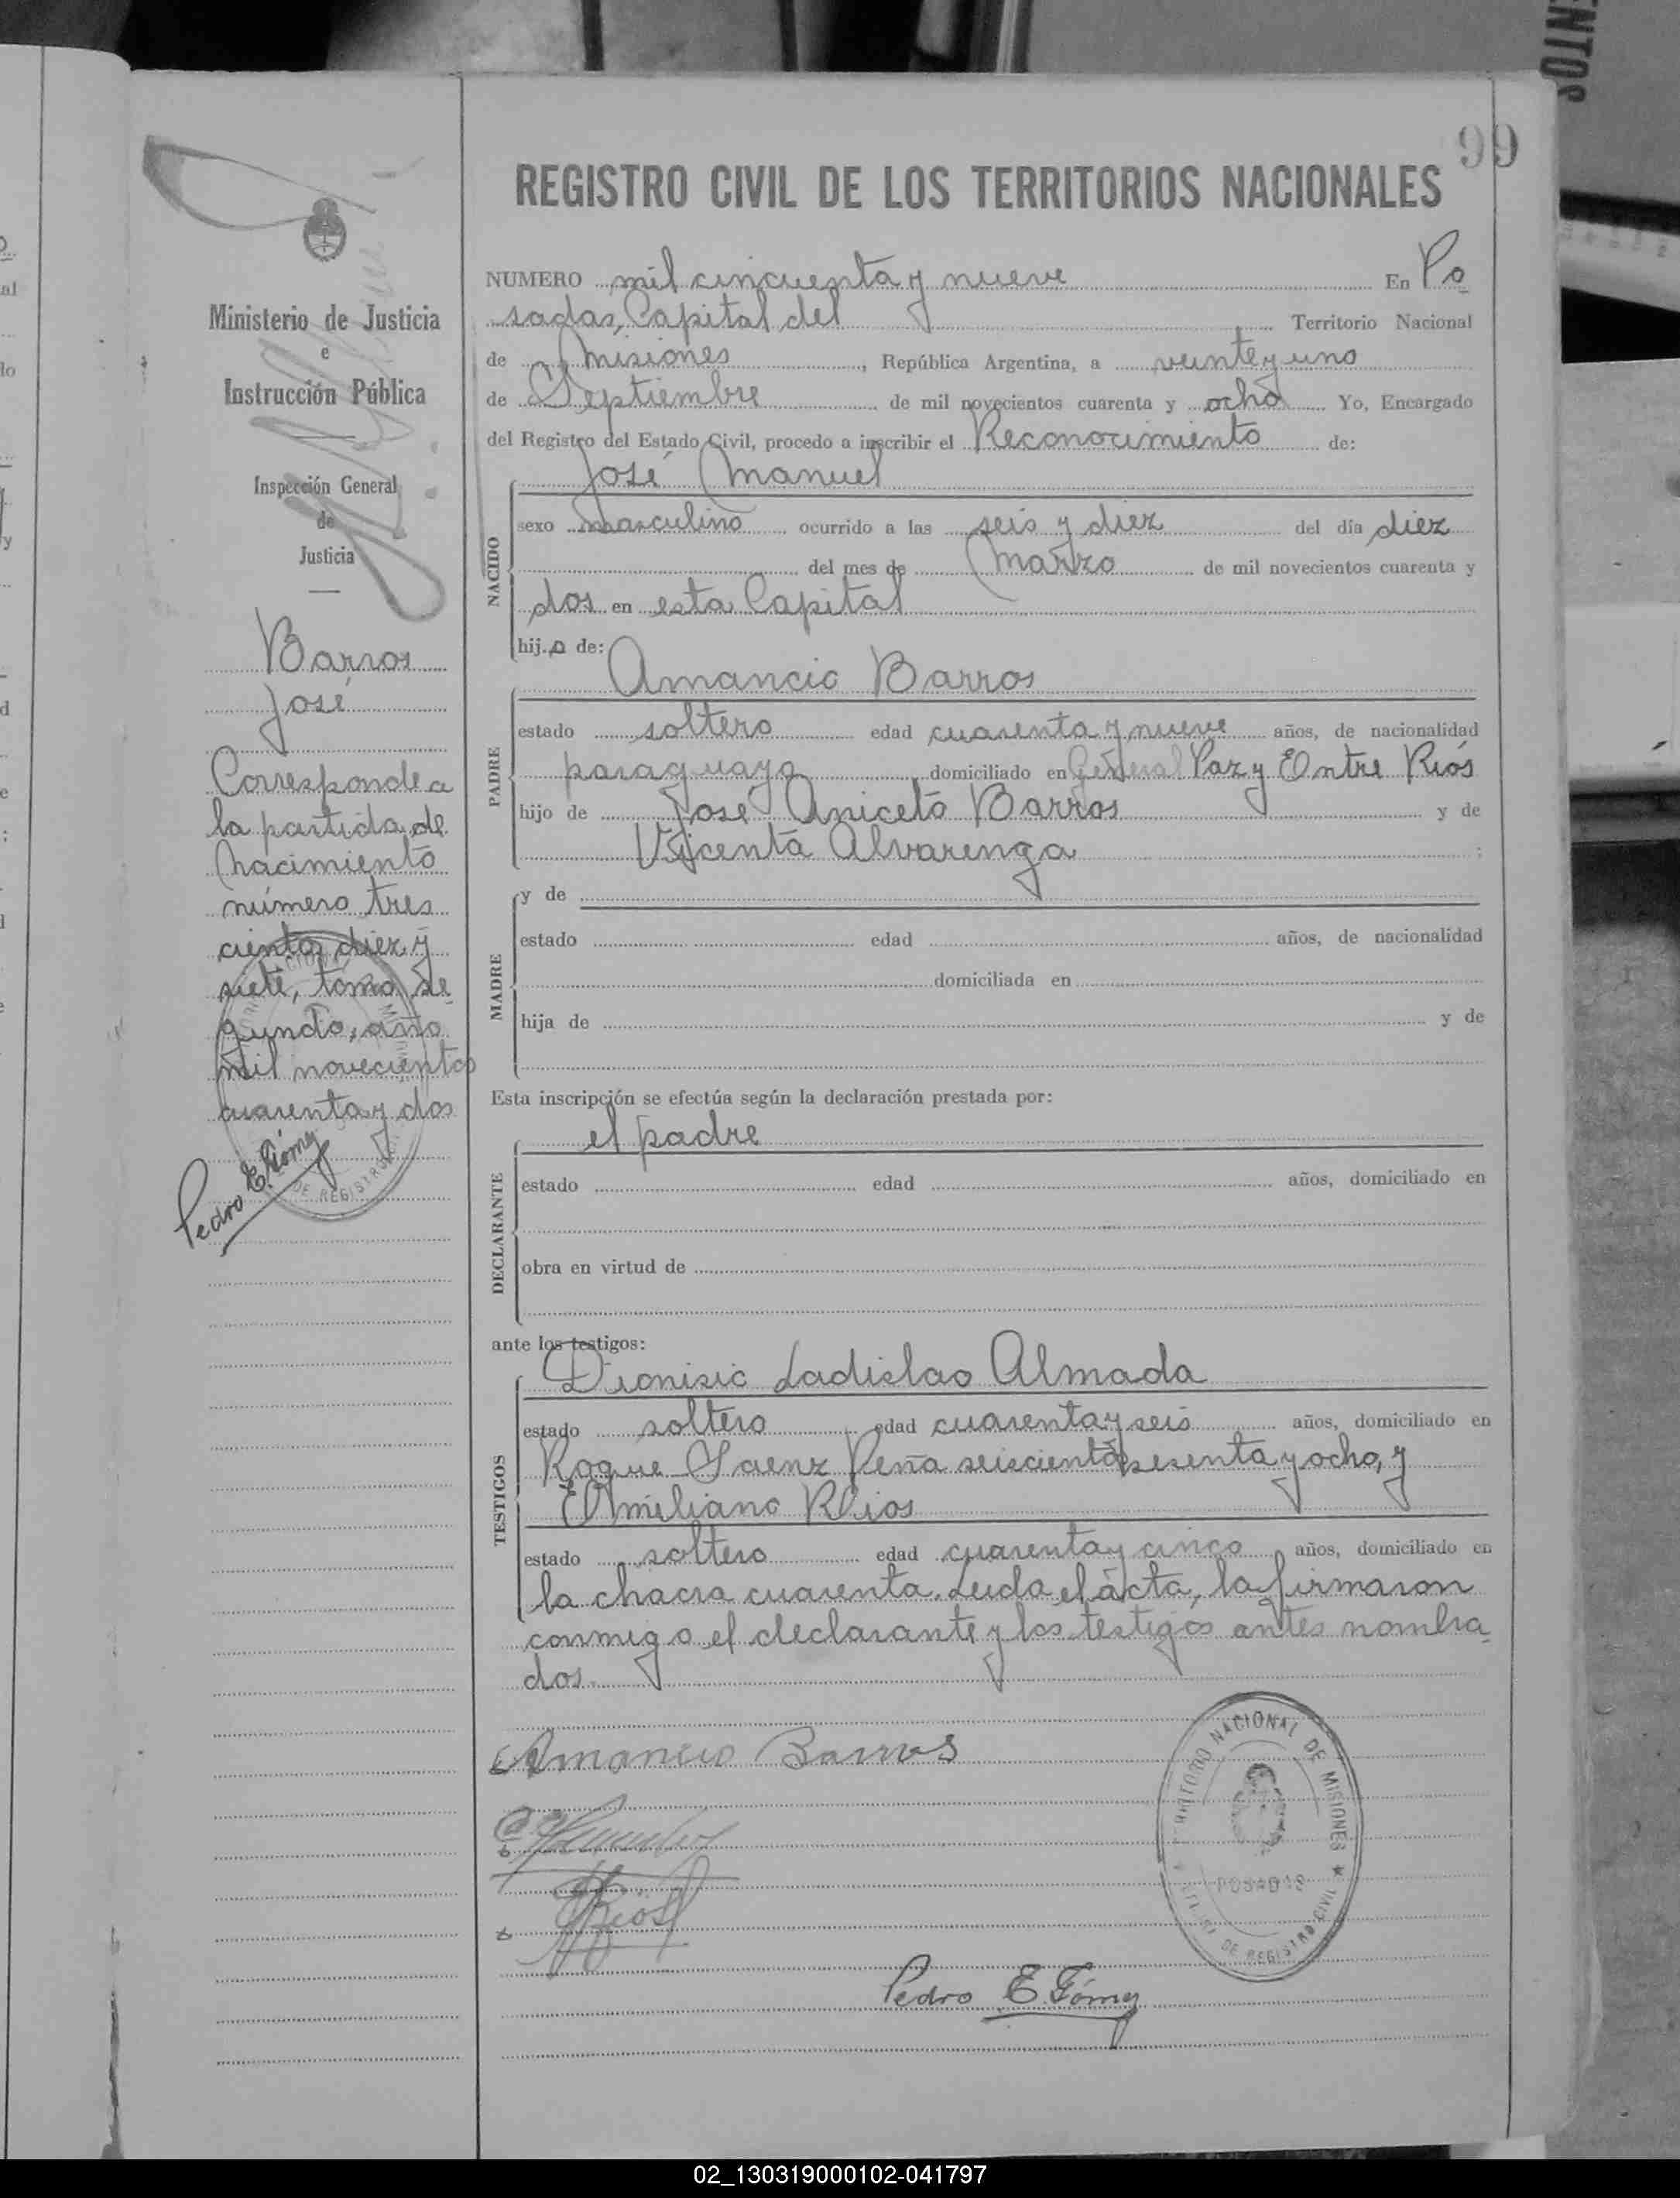 ENTOS
99
REGISTRO CIVIL DE LOS TERRITORIOS NACIONALES
Ministerio de Justicia
e
Instrucción Pública
Inspección General
de
Justicia
Barros
José
Corresponde a
la partida de
Nacimiento
número tres
cientos diez y
siete, tomo se-
gundo, año
mil novecientos
cuarenta y dos
Pedro E. Gómez
DE REGISTRO
NUMERO mil cincuenta y nueve En Po
sadas, Capital del Territorio Nacional
de Misiones, República Argentina, a veinte y uno
de Septiembre de mil novecientos cuarenta y ocho Yo, Encargado
del Registro del Estado Civil, procedo a inscribir el Reconocimiento de:
José Manuel
NACIDO
sexo masculino ocurrido a las seis y diez del día diez
del mes de Marzo de mil novecientos cuarenta y
dos en esta Capital
hij.o de:
Amancio Barros
PADRE
estado soltero edad cuarenta y nueve años, de nacionalidad
paraguaya domiciliado en General Paz y Entre Ríos
hijo de José Aniceto Barros y de
Vicenta Alvarenga ;
MADRE
y de
estado edad años, de nacionalidad
domiciliada en
hija de y de
Esta inscripción se efectúa según la declaración prestada por:
el padre
DECLARANTE
estado edad años, domiciliado en
obra en virtud de
ante los testigos:
Dionisio Ladislao Almada
TESTIGOS
estado soltero edad cuarenta y seis años, domiciliado en
Roque Saenz Peña seiscientos sesenta y ocho, y
Emiliano Ríos
estado soltero edad cuarenta y cinco años, domiciliado en
la chacra cuarenta. Leida el acta, la firmaron
conmigo el declarante y los testigos antes nombra-
dos.
Amancio Barros
Ríos
TERRITORIO NACIONAL DE MISIONES
POSADAS
DE REGISTRO CIVIL
Pedro E. Gómez
02_130319000102-041797